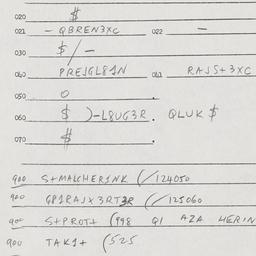 020 $
021 - QBREN3XC 022 -
030 $/-
040 PREJGL81N 041 RAJS+3XC
050 0
060 $ )-L8UG3R. QLUK $
070 $
900 S+MALCHERINK (/124050
900 G81RAJX3RT3R (/125060
900 S+PROT+ (998 QI AZA HERIN
900 TAK1+ (525